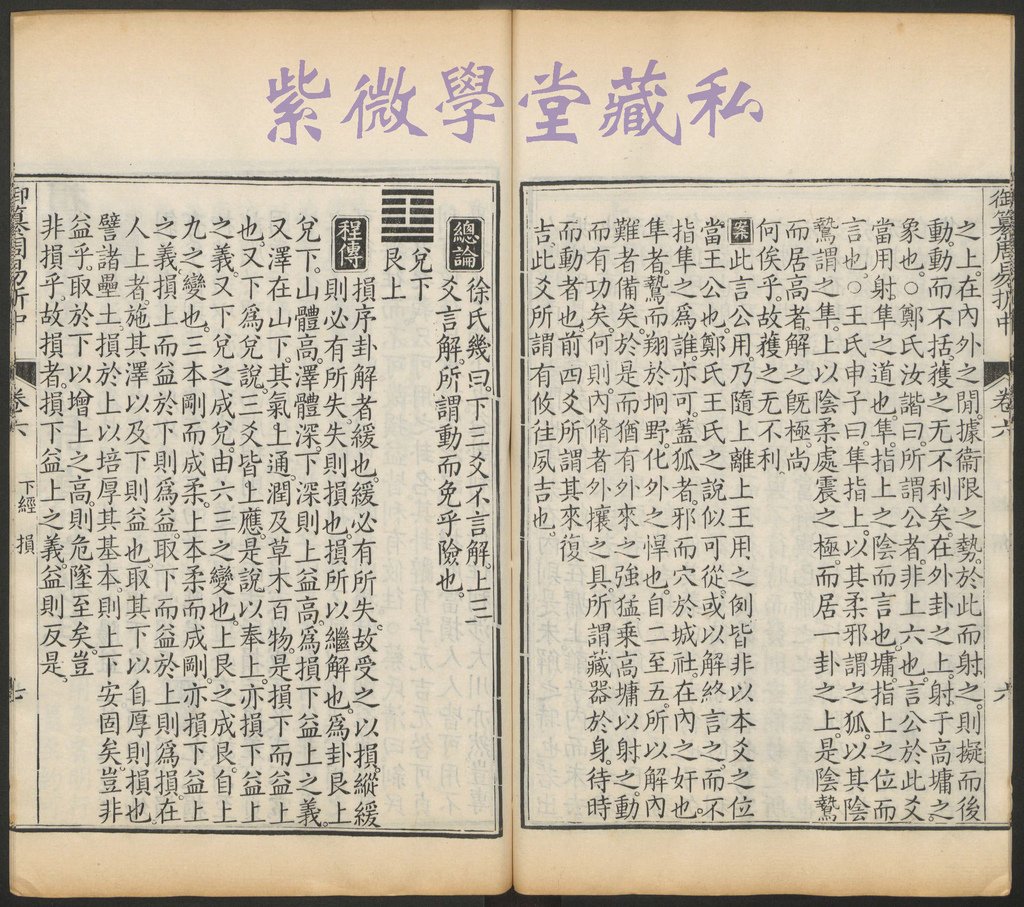 紫微學堂藏私
御纂周易折中
卷六
六
之上。在內外之閒。據衞限之勢。於此而射之。則擬而後
動。動而不括。獲之无不利矣。在外卦之上。射于高墉之
象也。○鄭氏汝諧曰。所謂公者。非上六也。言公於此爻
當用射隼之道也。隼。指上之陰而言也。墉。指上之位而
言也。○王氏申子曰。隼指上。以其柔邪謂之狐。以其陰
鷙謂之隼。上以陰柔處震之極。而居一卦之上。是陰鷙
而居高者。解之旣極。尚
何俟乎。故獲之无不利。
案此言公用。乃隨上離上王用之例。皆非以本爻之位
當王公也。鄭氏王氏之說似可從。或以解終言之。而不
指隼之爲誰。亦可。蓋狐者。邪而穴於城社。在內之奸也。
隼者。鷙而翔於坰野。化外之悍也。自二至五。所以解內
難者備矣。於是而猶有外來之強猛。乘高墉以射之。動
而有功矣。何則。內脩者外攘之具。所謂藏器於身。待時
而動者也。前四爻所謂其來復
吉。此爻所謂有攸往夙吉也。
總論徐氏幾曰。下三爻不言解。上三
爻言解。所謂動而免乎險也。
兌下
艮上
程傳損序卦解者緩也。緩必有所失。故受之以損。縱緩
則必有所失。失則損也。損所以繼解也。爲卦艮上
兌下。山體高。澤體深。下深則上益高。爲損下益上之義。
又澤在山下。其氣上通。潤及草木百物。是損下而益上
也。又下爲兌說。三爻皆上應。是說以奉上。亦損下益上
之義。又下兌之成兌。由六三之變也。上艮之成艮。自上
九之變也。三本剛而成柔。上本柔而成剛。亦損下益上
之義。損上而益於下則爲益。取下而益於上則爲損。在
人上者。施其澤以及下則益也。取其下以自厚則損也。
譬諸壘土。損於上以培厚其基本。則上下安固矣。豈非
益乎。取於下以增上之高。則危墜至矣。豈
非損乎。故損者。損下益上之義。益則反是。
御纂周易折中
卷六
下經 損
七